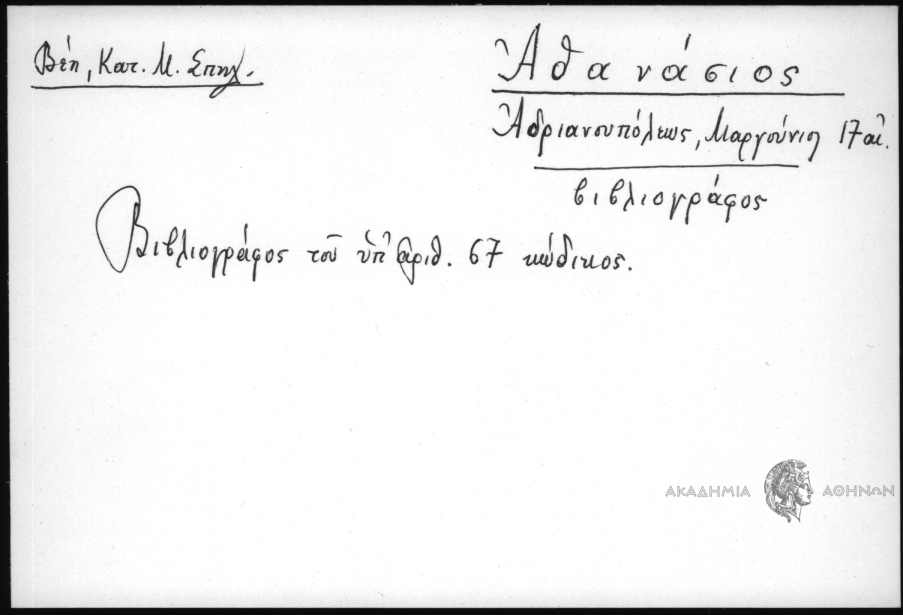 Βέη, Κατ. Μ. Σπηλ.
Ἀθανάσιος
Ἀδριανουπόλεως, Μαργούνιος 17 αἰ.
βιβλιογράφος
Βιβλιογράφος τοῦ ὑπ' ἀριθ. 67 κώδικος.
ΑΚΑΔΗΜΙΑ ΑΘΗΝΩΝ